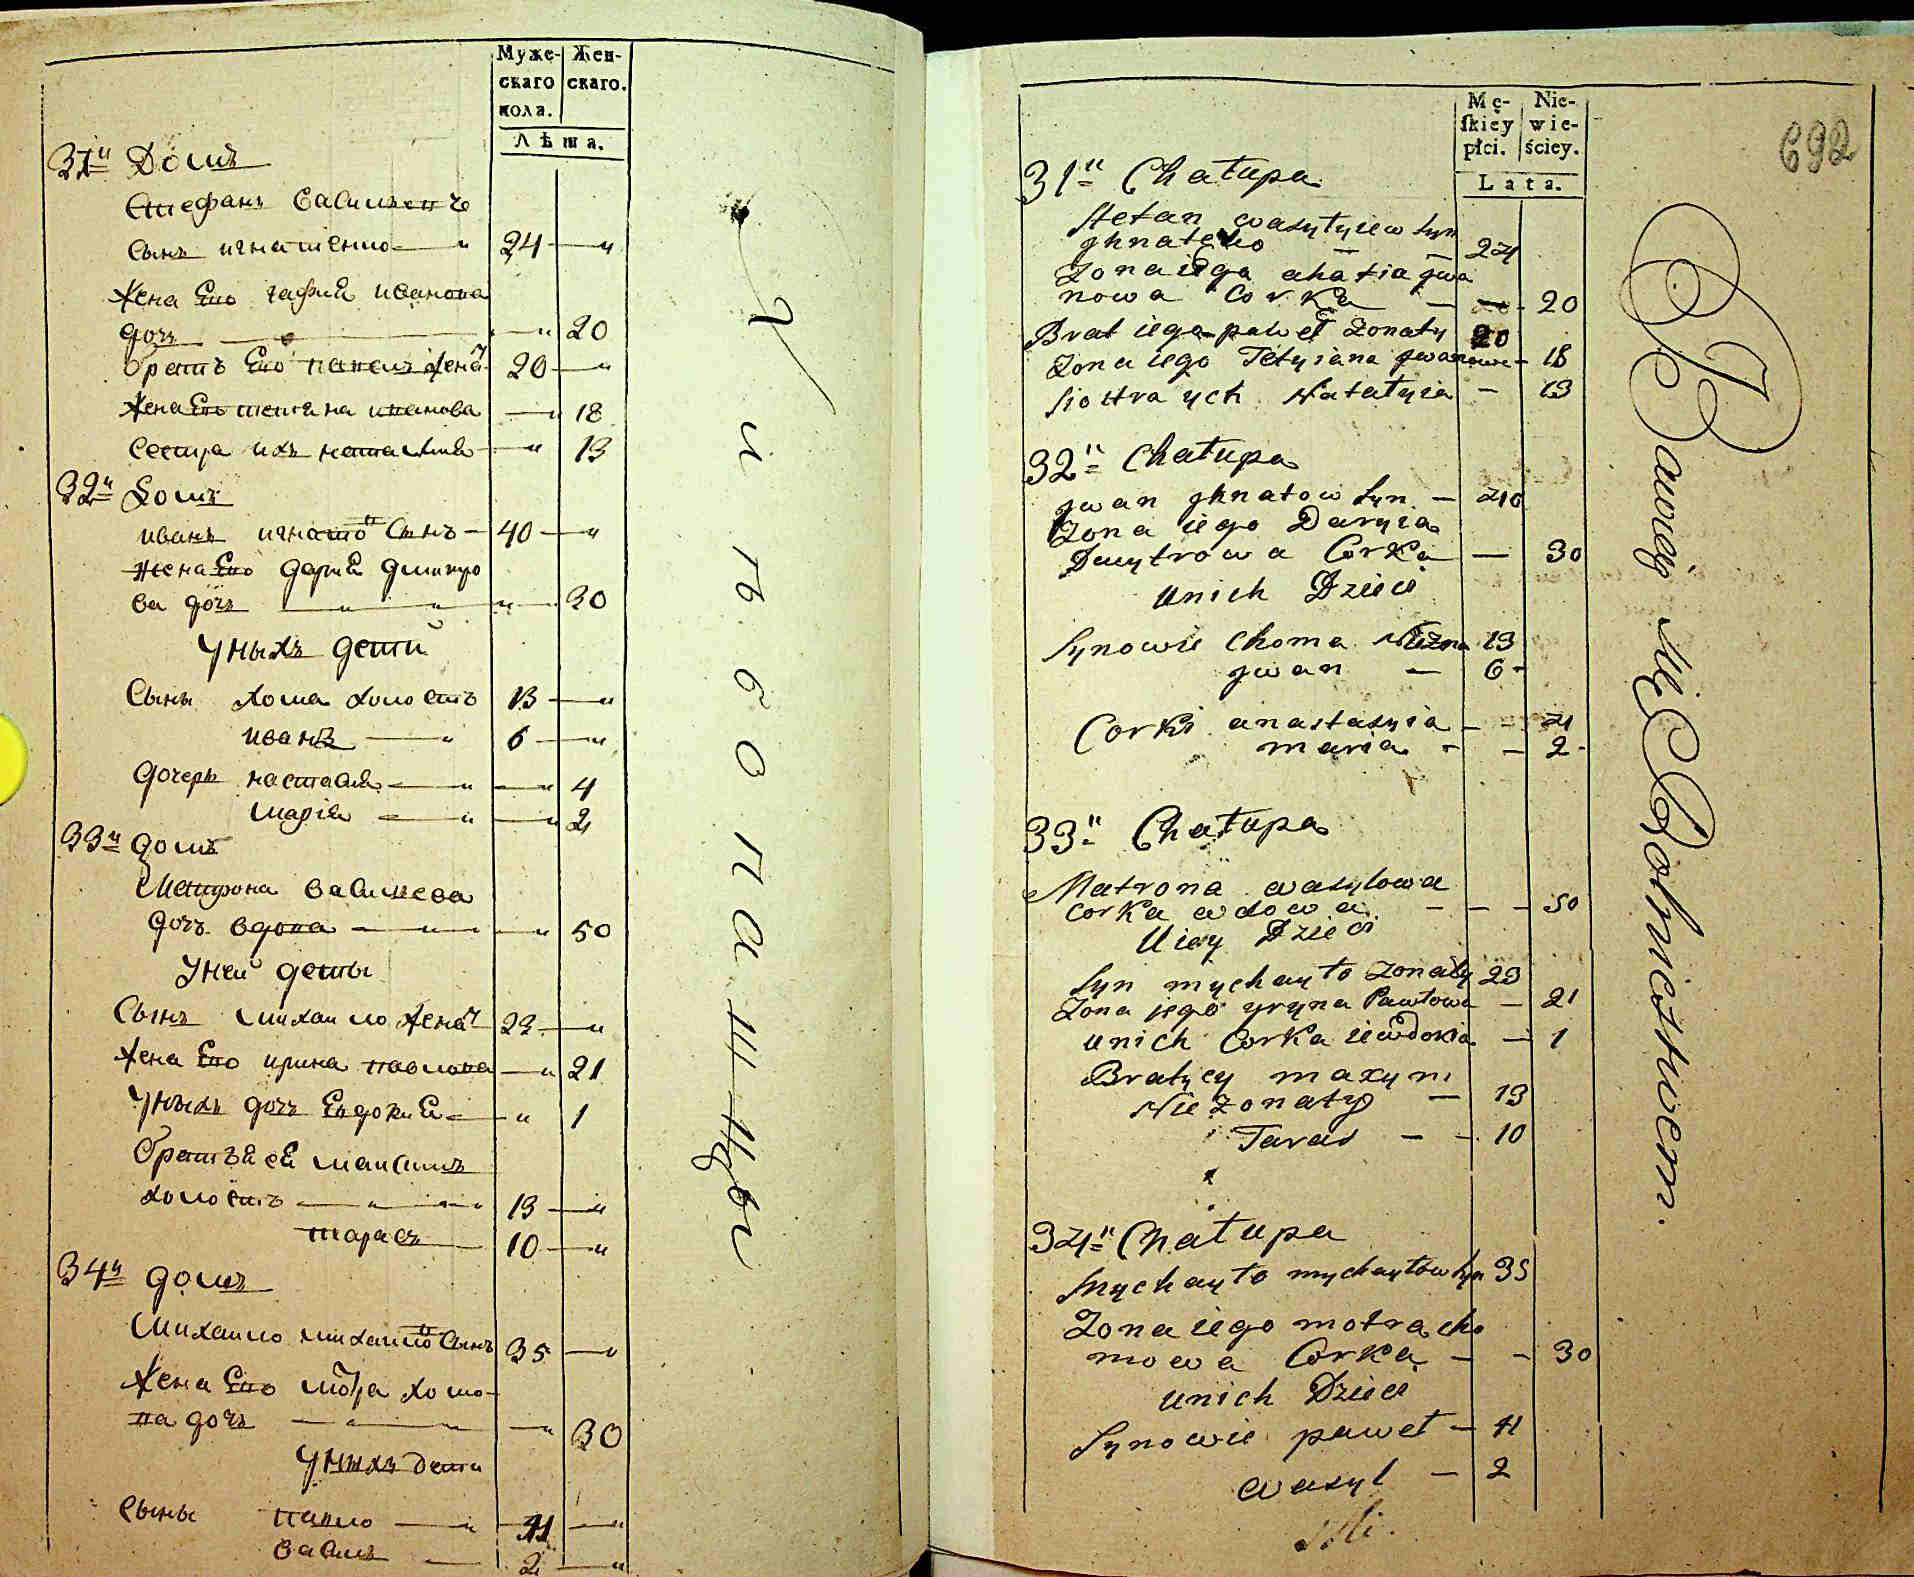 Муже-
скаго
пола.
Жен-
скаго.
Лѣта.
31й Домъ
Стефанъ василіевъ
сынъ игнатенко — „ 24 — „
Жена Его гафия иванова
дочь — „ 20
братъ Его павелъ женат 20 — „
жена Его тетяна иванова — „ 18
сестра ихъ наталия — „ 13
32й Домъ
иванъ игнатов сынъ — 40 — „
жена Его дария дмитро
ва дочь — „ — „ — „ — 30
Уныхъ дети
Сыны хома холостъ 13 — „
иванъ — „ 6 — „
дочери настасия — „ — „ 4
мария — „ — „ 2
33й домъ
Матрона василева
дочь вдова — „ — „ — „ 50
Уней дети
Сынъ михаило женат 23 — „
жена Его ирина павлова — „ 21
Уныхъ дочь Евдокия — „ 1
братья ей максимъ
холостъ — „ — „ 13 — „
тарасъ — 10 — „
34й домъ
Михаило михаилов сынъ 35 — „
жена Его мотра хомо-
ва дочь — „ — „ 30
Уныхъ дети
Сыны павло — „ 4 — „
василь — 2 — „
Житбопанщи
Mę-
ſkiey
płci.
Nie-
wie-
ściey.
Lata.
692
31" Chatupa
Stefan wasylyiew syn
yhnatenko — — 24
Zona iego ahafia jwa
nowa Corka — — 20
Brat iego paweł zonaty 20
Zona iego Tetyiana jwanowa — 18
siostra ych Natalyia — 13
32" Chatupa
jwan yhnatow syn — 40
Zona iego Daryia
Dmytrowa Corka — 30
Unich Dzieci
Synowie Choma Niezona 13
jwan — 6 -
Corki anastasyia — - 4
maria - - 2 -
33" Chatupa
Matrona wasylowa
corka wdowa — — — 50
Uiey Dzieci
Syn mychayło zonaty 23
Zona jego yryna Pawłowa — 21
unich Corka iewdokia — 1
Bratycy maxym
Nie zonaty — 13
Taras — - 10
34" Chatupa
Mychayło mychayłow syn 35
Zona iego motra cho
mowa Corka — - 30
unich Dzieci
Synowie paweł — 4
wasyl — 2